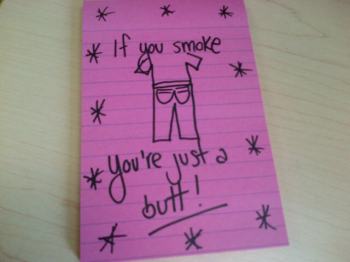 If you smoke
You're just a
butt!